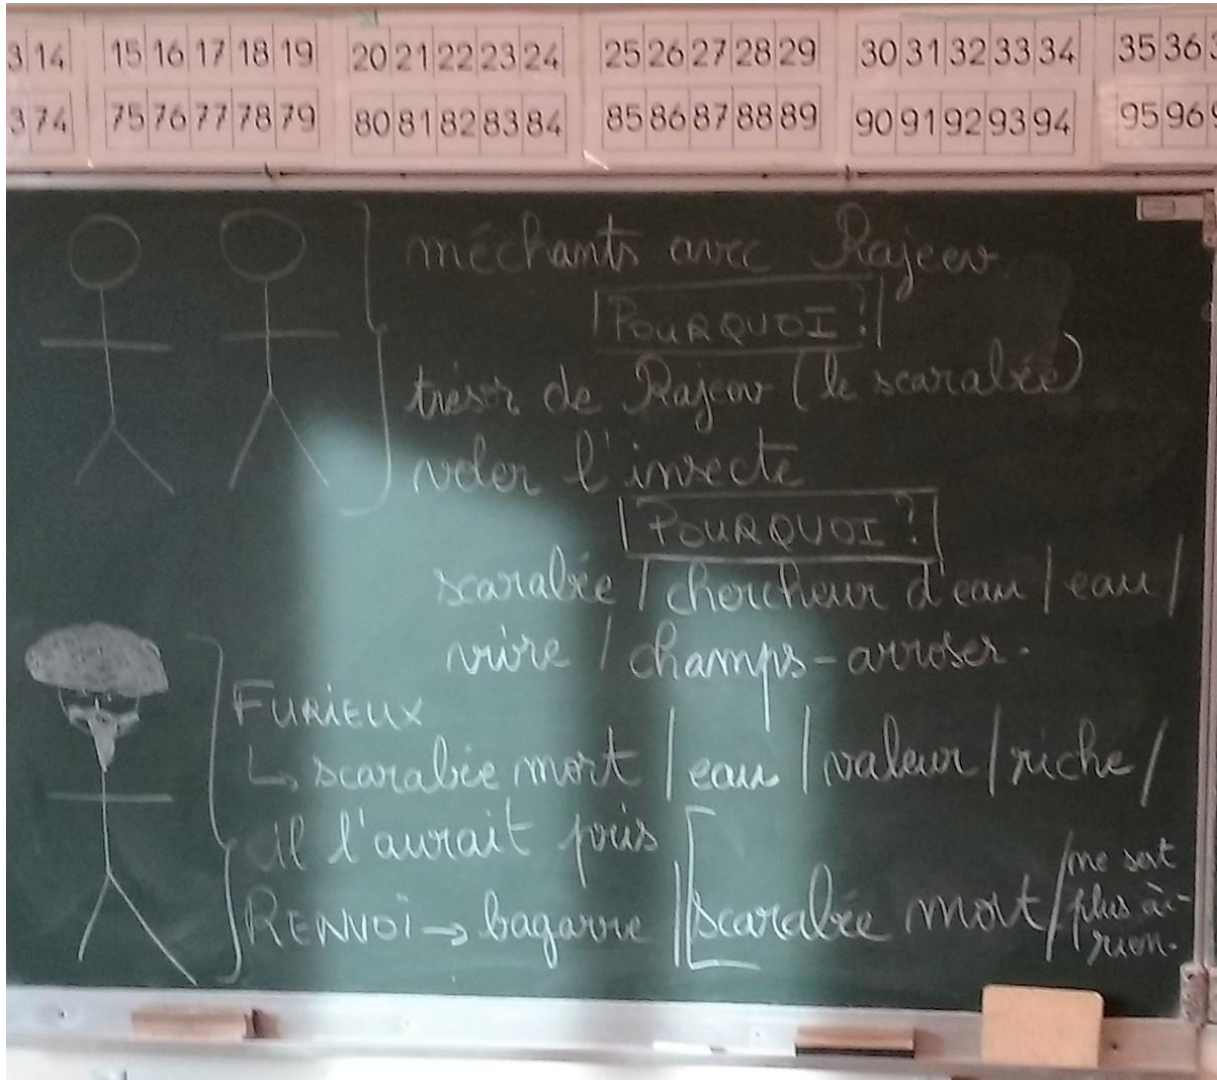 3 14 15 16 17 18 19 20 21 22 23 24 25 26 27 28 29 30 31 32 33 34 35 36
3 74 75 76 77 78 79 80 81 82 83 84 85 86 87 88 89 90 91 92 93 94 95 96 9
méchants avec Rajeev
POURQUOI ?
trésor de Rajeev (le scarabée)
voler l'insecte
POURQUOI ?
scarabée / chercheur d'eau / eau /
vivre / champs - arroser.
FURIEUX
↳ scarabée mort / eau / valeur / riche /
il l'aurait pris
RENVOI → bagarre [scarabée mort / ne sert
plus à -
rien.